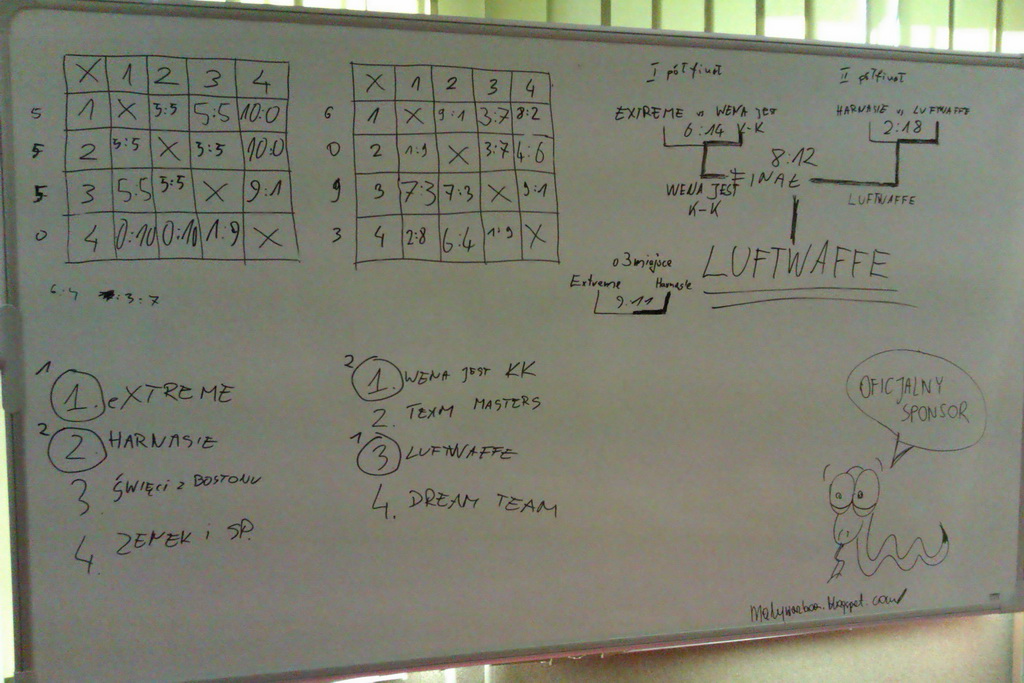 X 1 2 3 4
5 1 X 5:5 5:5 10:0
5 2 5:5 X 5:5 10:0
5 3 5:5 5:5 X 9:1
0 4 0:10 0:10 1:9 X
6:4 :3:7
X 1 2 3 4
6 1 X 9:1 3:7 8:2
0 2 1:9 X 3:7 4:6
9 3 7:3 7:3 X 9:1
3 4 2:8 6:4 1:9 X
I półfinał
EXTREME vs WENA JEST
6:14 K-K
II półfinał
HARNASIE vs LUFTWAFFE
2:18
8:12
FINAŁ
WENA JEST
K-K
LUFTWAFFE
LUFTWAFFE
o 3 miejsce
Extreme Harnasie
9:11
1
1. eXTREME
2
2 HARNASIE
3 ŚWIĘCI Z BOSTONU
4. ZENEK i SP.
2
1. WENA JEST KK
2. TEAM MASTERS
1
3 LUFTWAFFE
4. DREAM TEAM
OFICJALNY
SPONSOR